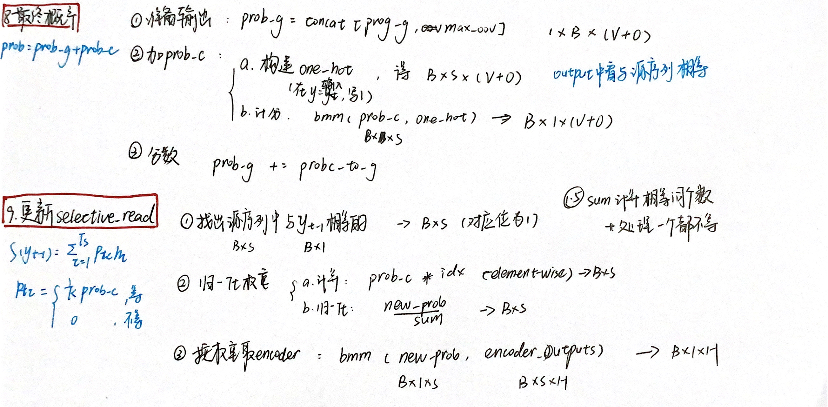 8.最终概率
prob=prob-g+prob-c
① 准备输出 : prob-g = concat [prog-g, max-oov] 1×B×(V+O)
② 加prob-c : a. 构造one-hot , 得 B×S×(V+O) output中看与源序列相等
(在y=输入, 写1)
b. 计分. bmm(prob-c, one-hot) → B×1×(V+O)
B×1×S
③ 分数 prob-g += probc-to-g
9.更新selective_read
S(yt-1)=∑ hτ
{ prob-c , 等
0 , 不等
① 找出源序列中与yt-1相等的 → B×S (对应位为1)
B×S B×1
①.5 sum 计算相等词个数
+处理一个都不等
② 归一化权重 { a.计算: prob-c * idx (element-wise) → B×S
b.归一化: new-prob / sum → B×S
③ 按权重取encoder : bmm ( new-prob, encoder_Outputs) → B×1×H
B×1×S B×S×H